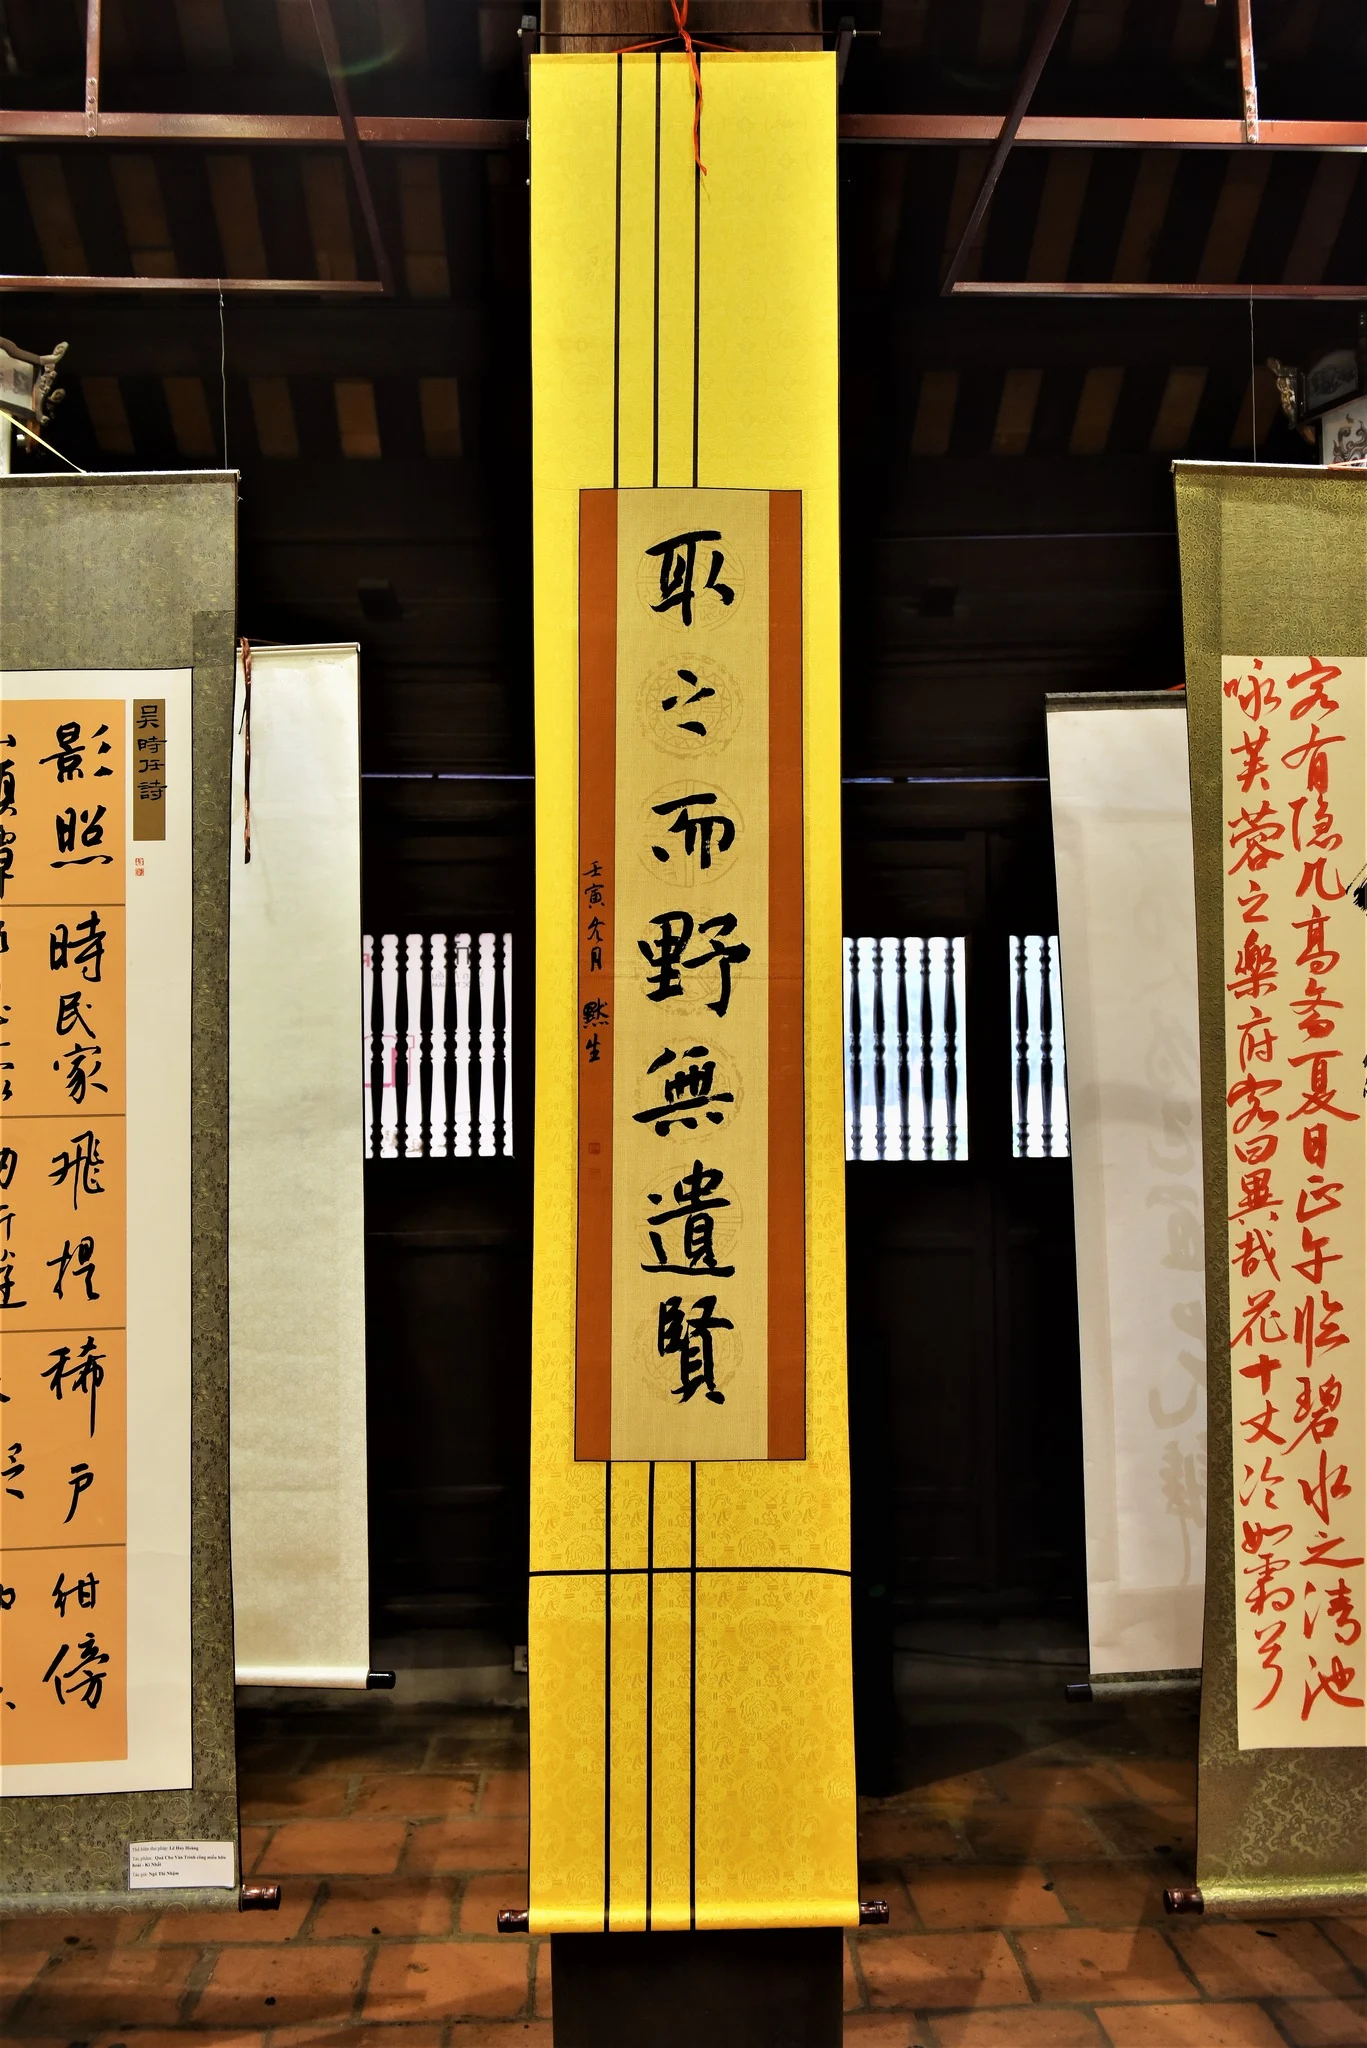 吳時任詩
影照時民家飛提稀戶紺傍
Thể hiện thư pháp: Lê Huy Hoàng
Tác phẩm: Quá Chu Văn Trinh công miếu hữu
hoài - Kì Nhất
Tác giả: Ngô Thì Nhậm
取之而野無遺賢
壬寅冬月 默生
客有隐几高斋夏日正午临碧水之清池
咏芙蓉之樂府客曰異哉花十丈冷如霜兮